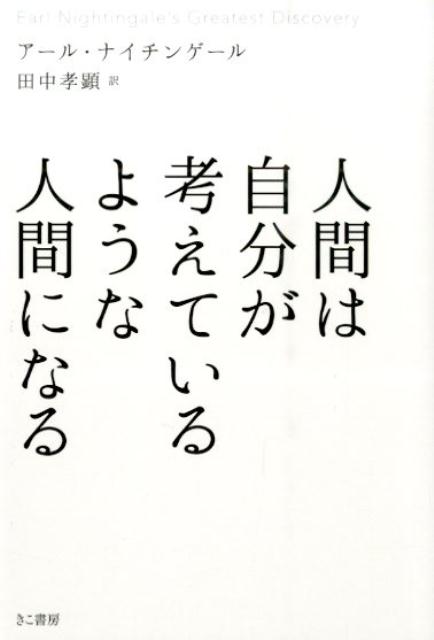 Earl Nightingale's Greatest Discovery
アール・ナイチンゲール
田中孝顕 訳
人間は
自分が
考えている
ような
人間になる
きこ書房